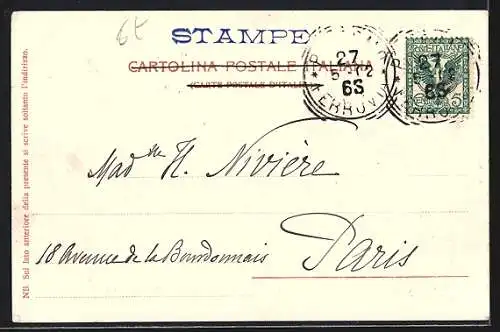 6t
STAMPE
CARTOLINA POSTALE ITALIANA
(CARTE POSTALE D'ITALIE)
27
02
6S
FERROVIA
27
6S
Mad lle H. Nivière
18 Avenue de la Bourdonnais
Paris
NB. Sul lato anteriore della presente si scrive soltanto l'indirizzo.